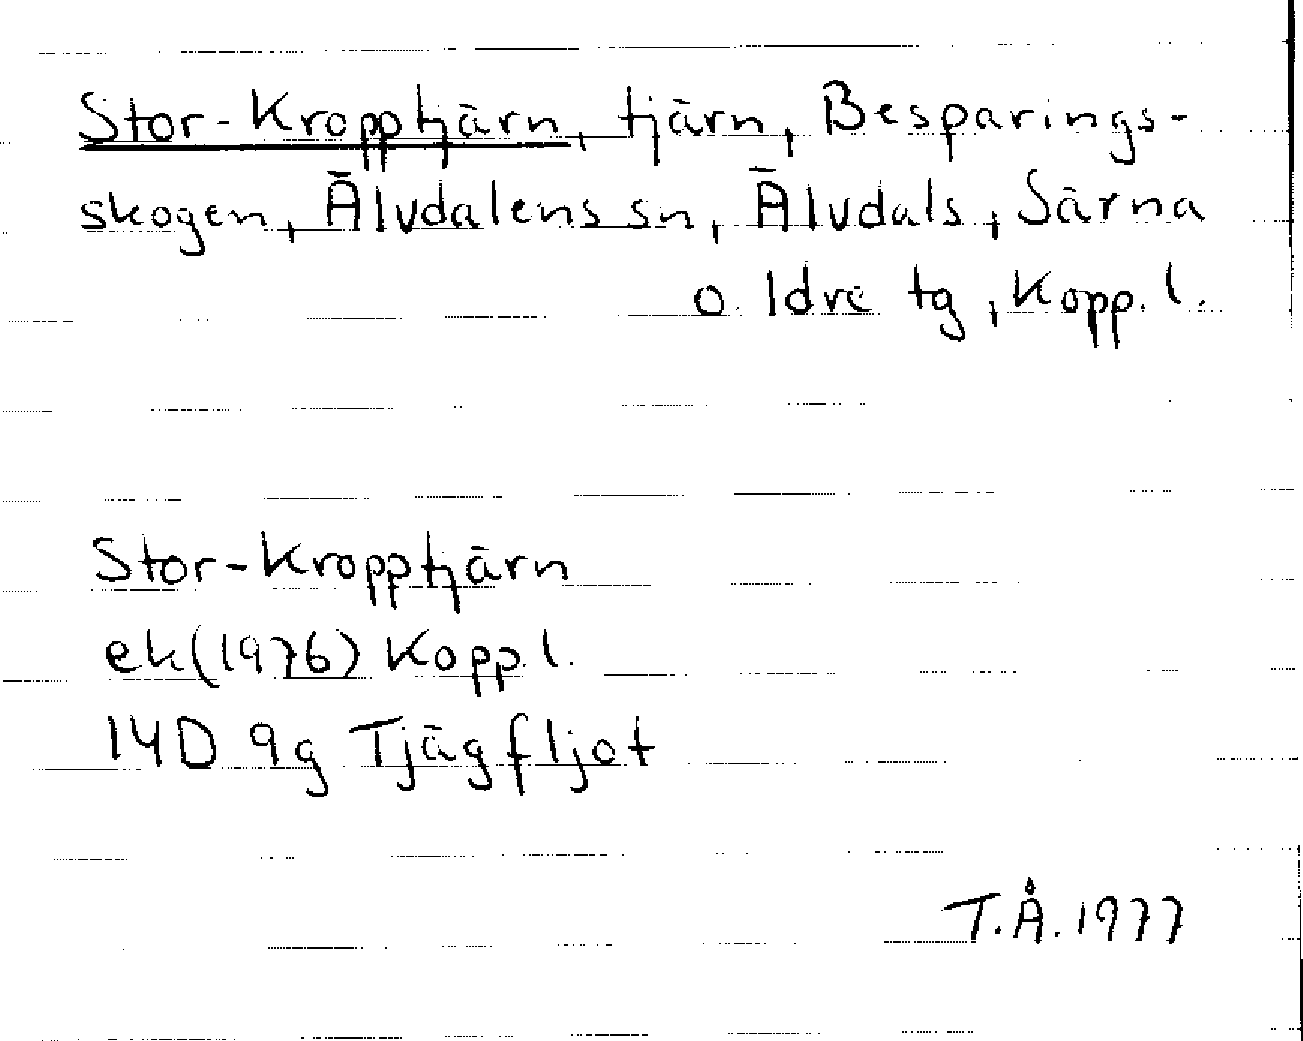 Stor-Kropptjärn, tjärn, Besparings-
skogen, Älvdalens sn, Älvdals, Särna
o. Idre tg, Kopp. l.
Stor-Kropptjärn
ek(1976) Kopp. l.
14D 9g Tjägfljot
T.Å. 1977